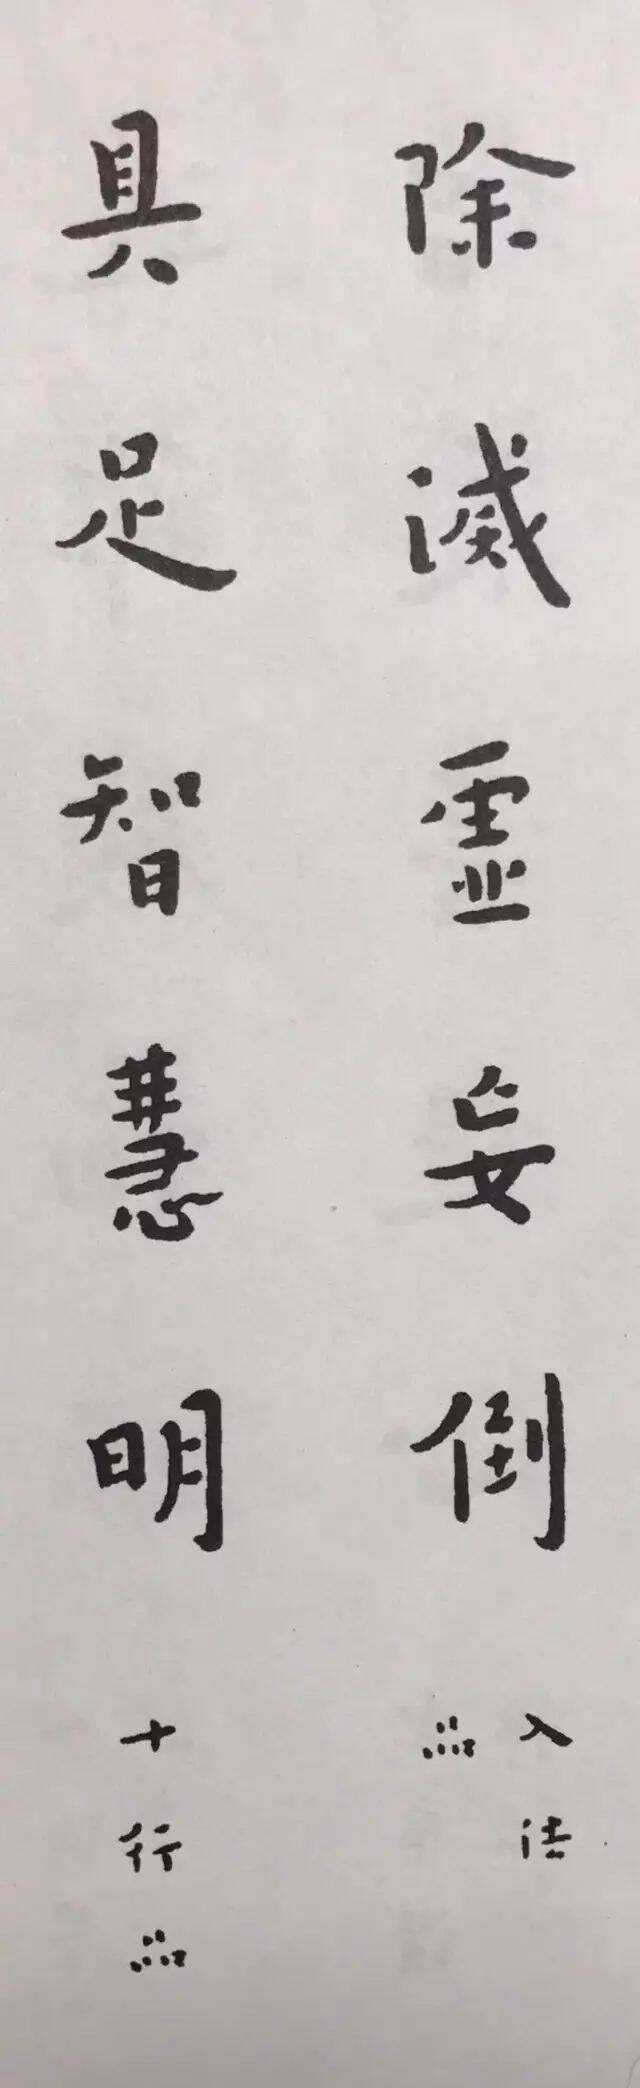 除滅虛妄倒
入法
品
具足智慧明
十行品